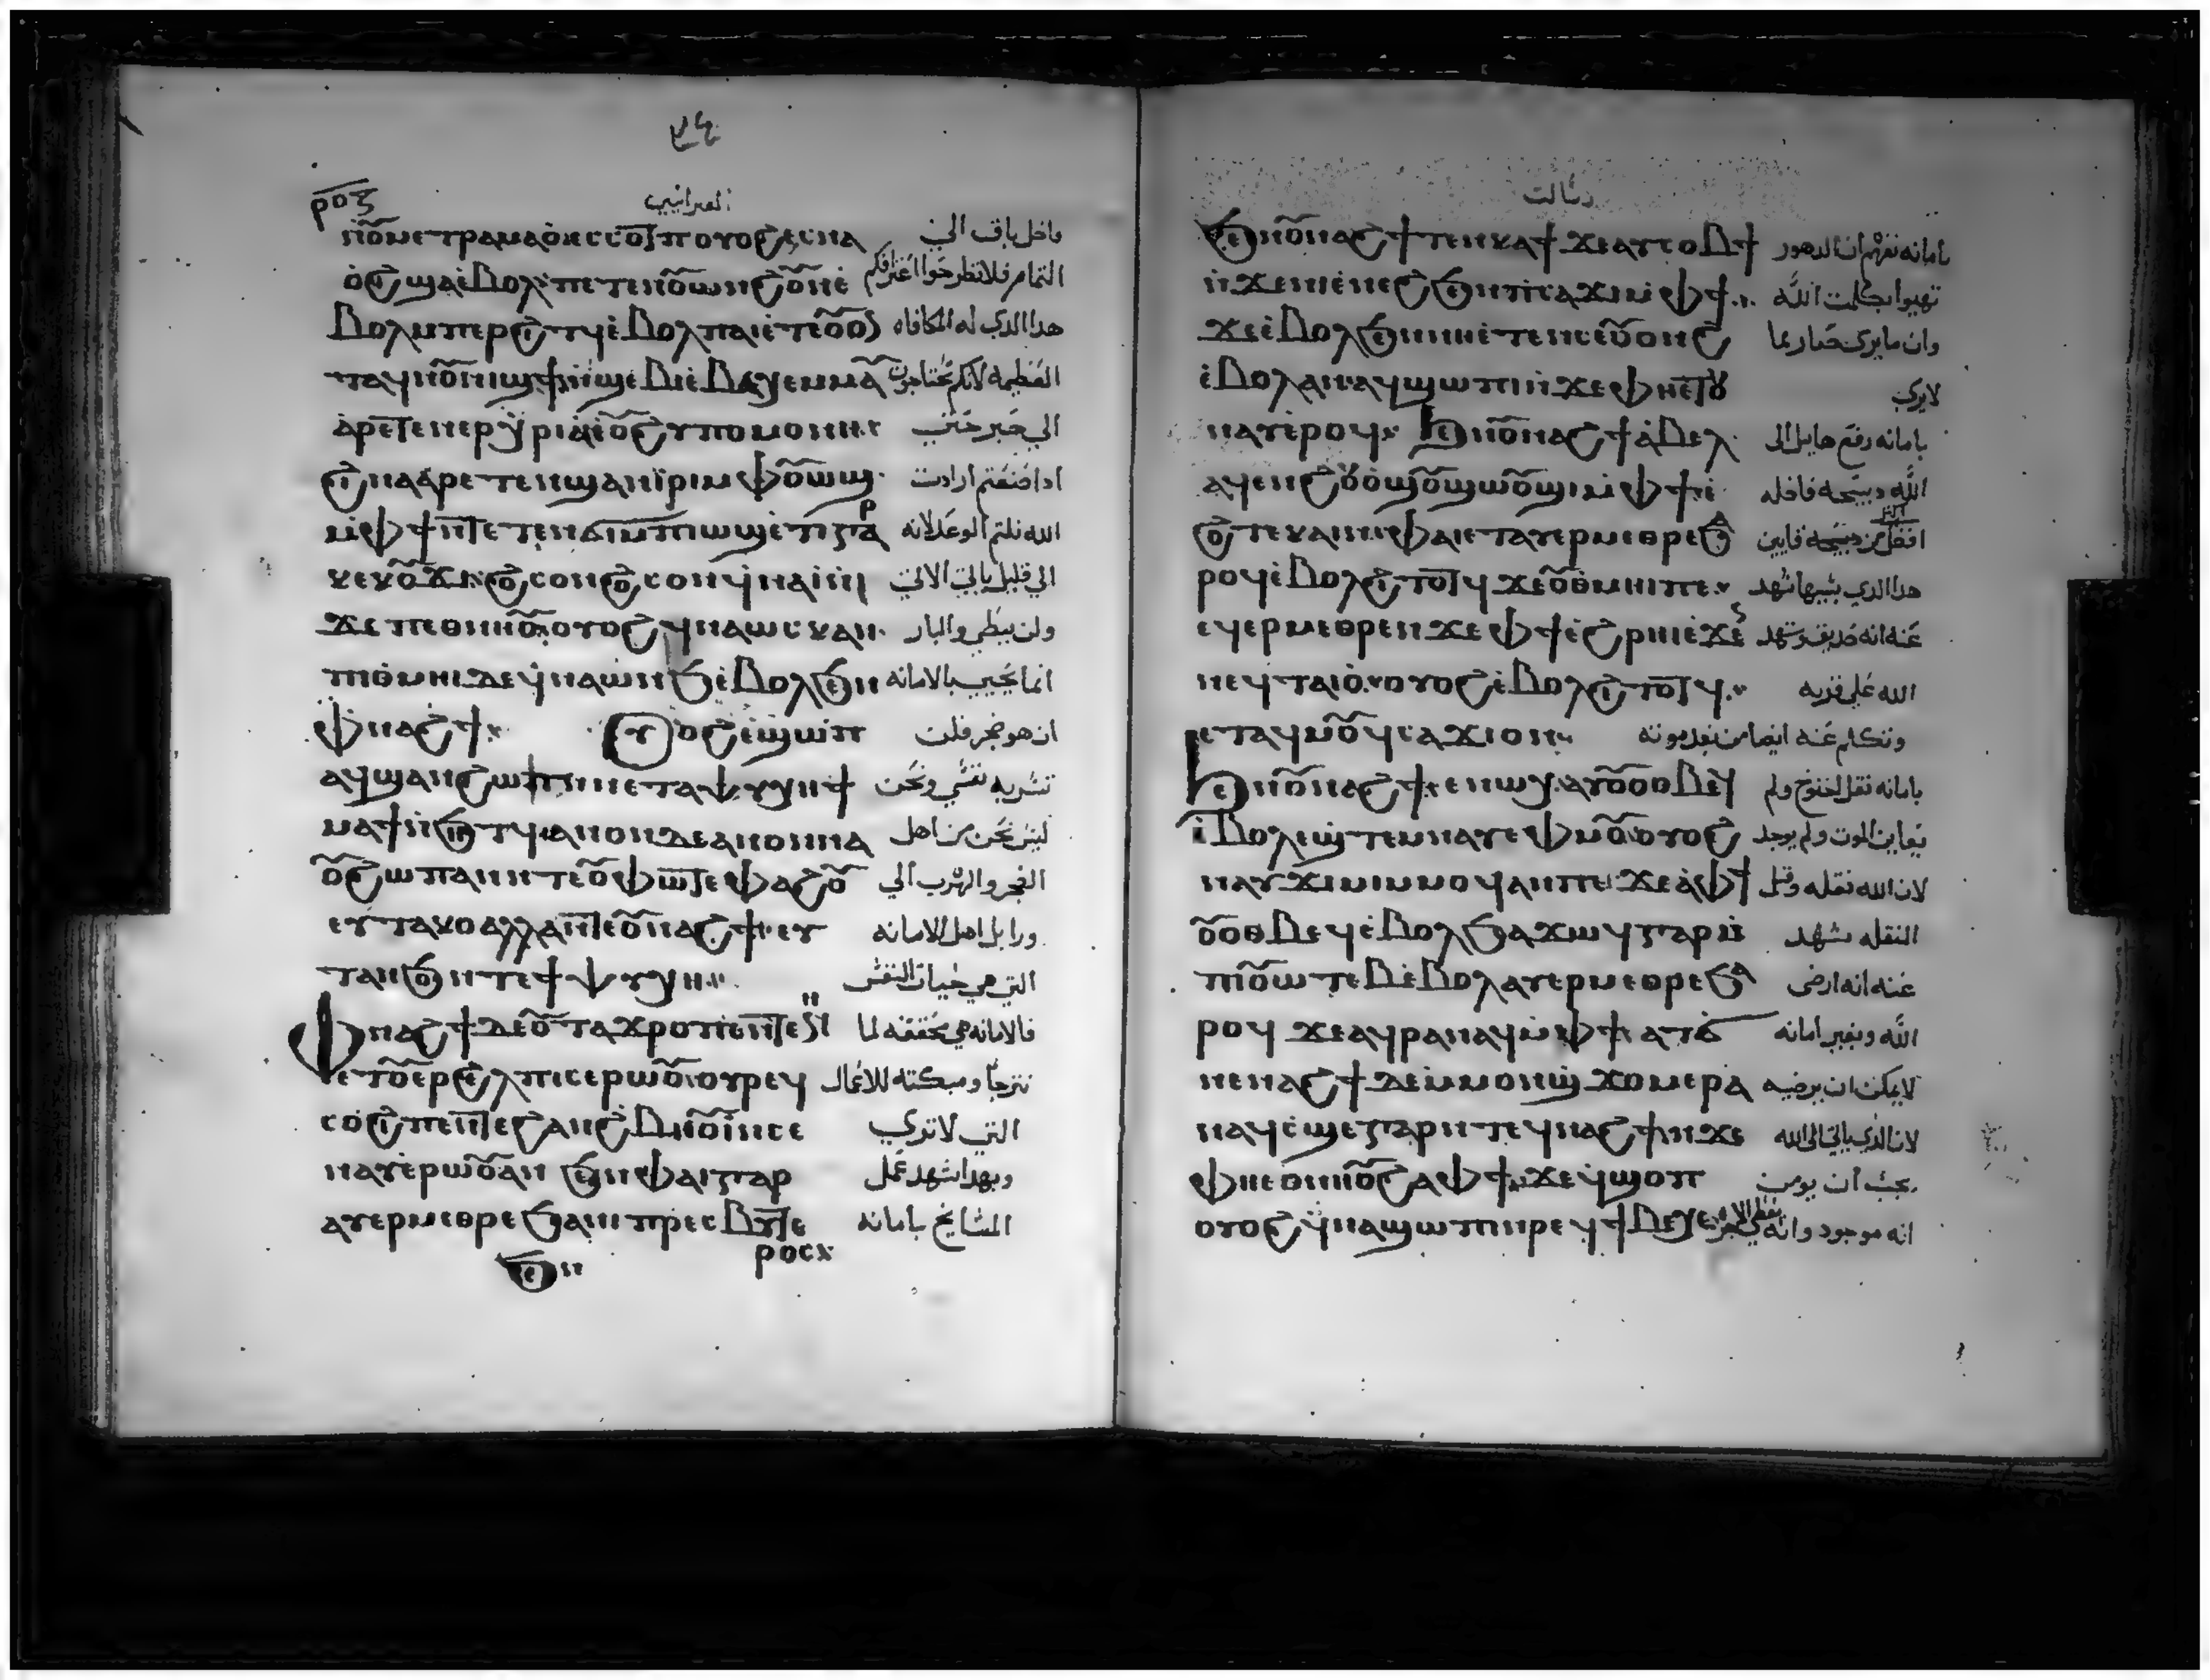 ⲣⲟⲍ العبرانيين
ⲛⲟⲩⲙⲉⲧⲣⲁⲙⲁⲟ ⲉⲥⲥⲟⲧⲡ ⲟⲩⲟϩ ⲉⲥⲛⲁ فاضل باق الى
ⲟϩⲓ ϣⲁⲉⲃⲟⲗ ⲡⲉⲧⲉⲛⲟⲩⲱⲛϩ ⲟⲩⲛ ⲉ التمام فلا تطرحوا اعترافكم
ⲃⲟⲗ ⲙⲡⲉⲣϩⲓⲧϥ ⲉⲃⲟⲗ ⲡⲁⲓ ⲉⲧⲉⲟⲩⲟⲛ هدا الدي له المكافاه
ⲧⲁϥ ⲛⲟⲩⲛⲓϣϯ ⲛϣⲉⲃⲓⲉ ⲃⲉⲭⲉ ⲙⲙⲁⲩ العظيمه لانكم تحتاجون
ⲁⲣⲉⲧⲉⲛⲉⲣⲭⲣⲓⲁ ⲛⲟⲩϩⲩⲡⲟⲙⲟⲛⲏ الي صبر حتي
ϩⲓⲛⲁ ⲁⲣⲉⲧⲉⲛϣⲁⲛⲓⲣⲓ ⲙⲫⲟⲩⲱϣ ادا صنعتم ارادت
ⲙⲫϯ ⲛⲧⲉⲧⲉⲛϭⲓ ⲙⲡⲓⲱϣ ⲉⲧⲓ ⲅⲁⲣ الله نلتم الوعد لانه
ⲕⲉⲕⲟⲩϫⲓ ϩⲟⲥⲟⲛ ϩⲟⲥⲟⲛ ϥⲛⲁⲓ ⲛ الي قليل ياتي الاتي
ϫⲉ ⲡⲉⲑⲛⲏⲟⲩ ⲟⲩⲟϩ ϥⲛⲁⲱⲥⲕ ⲁⲛ ولن يبطي والبار
ⲡⲓⲑⲙⲏⲓ ⲇⲉ ϥⲛⲁⲱⲛϧ ⲉⲃⲟⲗ ϧⲉⲛ انما يحيي بالامانه
ⲫⲛⲁϩϯ ⲟⲩⲟϩ ⲉϣⲱⲡ ان هو ضجر فلن
ⲁϥϣⲁⲛϩⲱⲡ ⲛⲛⲉ ⲧⲁⲯⲩⲭⲏ ϯ تسر به نفسي ونحن
ⲙⲁϯ ⲛϧⲏⲧϥ ⲁⲛⲟⲛ ⲇⲉ ⲁⲛⲟⲛ ⲛⲁ ليس نحن من اهل
ⲟⲩϩⲱⲡ ⲁⲛ ⲛⲧⲉ ⲟⲩⲫⲱⲧ ⲉⲫⲁϩⲟⲩ الفجر والهرب الي
ⲉⲩⲧⲁⲕⲟ ⲁⲗⲗⲁ ⲛⲧⲉ ⲟⲩⲛⲁϩϯ ⲉⲩ ورا بل اهل الامانه
ⲧⲁⲛϧⲟ ⲛⲧⲉ ϯⲯⲩⲭⲏ التي هي حيات النفس
ⲫⲛⲁϩϯ ⲇⲉ ⲟⲩⲧⲁϫⲣⲟ ⲡⲉ ⲛⲧⲉ ⲛⲏ فالامانه هي محققه لما
ⲉⲧⲟⲩⲉⲣϩⲉⲗⲡⲓⲥ ⲉⲣⲱⲟⲩ ⲟⲩⲣⲉϥ نترجا ومبكته للاعمال
ⲥⲟϩⲓ ⲡⲉ ⲛⲧⲉ ϩⲁⲛϩⲃⲏⲟⲩⲓ ⲛⲥⲉ التي لا تري
ⲛⲁⲩ ⲉⲣⲱⲟⲩ ⲁⲛ ϧⲉⲛ ⲫⲁⲓ ⲅⲁⲣ وبهدا شهد عمل
ⲁⲩⲉⲣⲙⲉⲑⲣⲉ ϧⲁ ⲛⲓⲡⲣⲉⲥⲃⲩⲧⲉ المشايخ بامانه
ⲣⲟⲥ
ϧⲉⲛ
رسالت
ϧⲉⲛ ⲟⲩⲛⲁϩϯ ⲧⲉⲛⲕⲁϯ ϫⲉ ⲁⲩⲥⲟⲃϯ بامانه نفهم ان الدهور
ⲛϫⲉ ⲛⲓⲉⲛⲉϩ ϧⲉⲛ ⲡⲥⲁϫⲓ ⲙⲫϯ تهيوا بكلمت الله
ϫⲉ ⲉⲃⲟⲗ ϧⲉⲛ ⲛⲏ ⲉⲧⲉ ⲛⲥⲉⲟⲩⲟⲛϩ وان ما يري صار بما
ⲉⲃⲟⲗ ⲁⲛ ⲁϥϣⲱⲡⲓ ⲛϫⲉ ⲫⲏ ⲉⲧⲟⲩ لا يري
ⲛⲁⲩ ⲉⲣⲟϥ ϧⲉⲛ ⲟⲩⲛⲁϩϯ ⲁⲃⲉⲗ بامانه رفع هابيل الى
ⲁϥⲉⲛ ϩⲟⲩⲟ ϣⲟⲩϣⲱⲟⲩϣⲓ ⲙⲫϯ الله دبيحه فاضله
ϩⲟⲧⲉ ⲕⲁⲓⲛ ⲫⲁⲓ ⲉⲧⲁⲩⲉⲣⲙⲉⲑⲣⲉ ϧⲁ افضل من دبيحه قايين
ⲣⲟϥ ⲉⲃⲟⲗ ϩⲓⲧⲟⲧϥ ϫⲉ ⲟⲩⲑⲙⲏⲓ ⲡⲉ هدا الدي بسببها شهد
ⲉϥⲉⲣⲙⲉⲑⲣⲉ ⲛϫⲉ ⲫϯ ⲉϩⲣⲏⲓ ⲉϫⲉⲛ عنه انه صديق وشهد
ⲛⲉϥⲧⲁⲓⲟ ⲟⲩⲟϩ ⲉⲃⲟⲗ ϩⲓⲧⲟⲧϥ الله علي قربه
ⲉⲧⲁϥⲙⲟⲩ ϥⲥⲁϫⲓ ⲟⲛ وتكلم عنه ايضا من بعد موته
ϧⲉⲛ ⲟⲩⲛⲁϩϯ ⲉⲛⲱⲭ ⲁⲩⲟⲩⲟⲑⲃⲉϥ بامانه نقل اخنوخ ولم
ⲉⲃⲟⲗ ⲉϣⲧⲉⲙⲛⲁⲩ ⲉⲫⲙⲟⲩ ⲟⲩⲟϩ يعاين الموت ولم يوجد
ⲛⲁⲩϫⲓⲙⲓ ⲙⲙⲟϥ ⲁⲛ ⲡⲉ ϫⲉ ⲁ ⲫϯ لان الله نقله وقبل
ⲟⲩⲟⲑⲃⲉϥ ⲉⲃⲟⲗ ϧⲁϫⲱϥ ⲅⲁⲣ ⲙ النقله شهد
ⲡⲓⲟⲩⲱⲧⲉⲃ ⲉⲃⲟⲗ ⲁⲩⲉⲣⲙⲉⲑⲣⲉ ϧⲁ عنه انه ارضى
ⲣⲟϥ ϫⲉ ⲁϥⲣⲁⲛⲁϥ ⲙⲫϯ ⲁⲧϭ الله وبغير امانه
ⲛⲉ ⲛⲁϩϯ ⲇⲉ ⲙⲙⲟⲛ ϣϫⲟⲙ ⲉⲣⲁ لا يمكن ان يرضيه
ⲛⲁϥ ⲥϣⲉ ⲅⲁⲣ ⲛⲧⲉϥⲛⲁϩϯ ⲛϫⲉ لان الدي ياتي الى الله
ⲫⲏ ⲉⲑⲛⲏⲟⲩ ϩⲁ ⲫϯ ϫⲉ ϥϣⲟⲡ يجب ان يومن
ⲟⲩⲟϩ ϥⲛⲁϣⲱⲡⲓ ⲛⲣⲉϥϯⲃⲉⲭⲉ انه موجود وانه